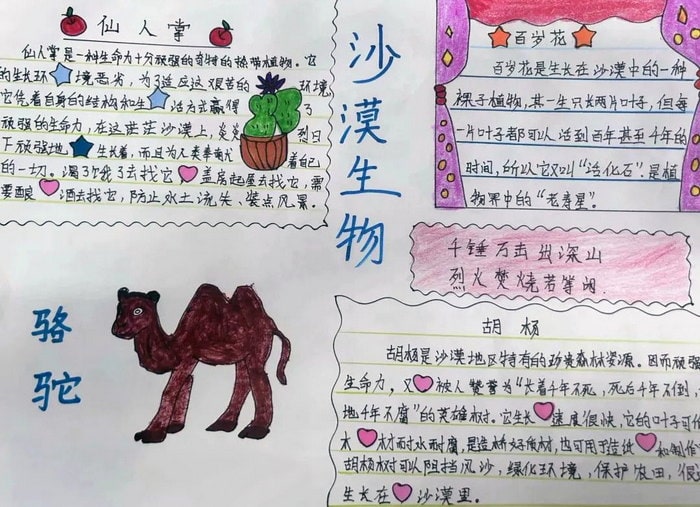 仙人掌
仙人掌是一种生命力十分顽强的奇特的热带植物。它
的生长环境恶劣,为了适应这艰苦的环境
它凭着自身的结构和生活方式赢得了
顽强的生命力,在这茫茫沙漠上,炎炎烈日
下顽强地生长着,而且为人类奉献着自己
的一切。渴了饿了去找它,盖房起屋去找它,需
要酿酒去找它,防止水土流失、装点风景。
沙漠生物
百岁花
百岁花是生长在沙漠中的一种
裸子植物,其一生只长两片叶子,但每
一片叶子都可以活到百年甚至千年的
时间,所以它又叫“活化石”.是植
物界中的“老寿星”。
千锤万击出深山
烈火焚烧若等闲.
骆驼
胡杨
胡杨是沙漠地区特有的珍贵森林资源。因而顽强
生命力,又被人赞誉为“长着千年不死,死后千年不倒
地千年不腐”的英雄树。它生长速度很快,它的叶子可作
木材耐水耐腐,是造桥好质材,也可用于造纸和制作
胡杨树可以阻挡风沙,绿化环境,保护农田,很
生长在沙漠里。